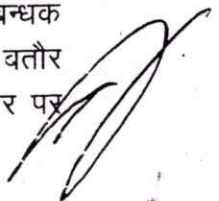 बन्धक
बतौर
र पर